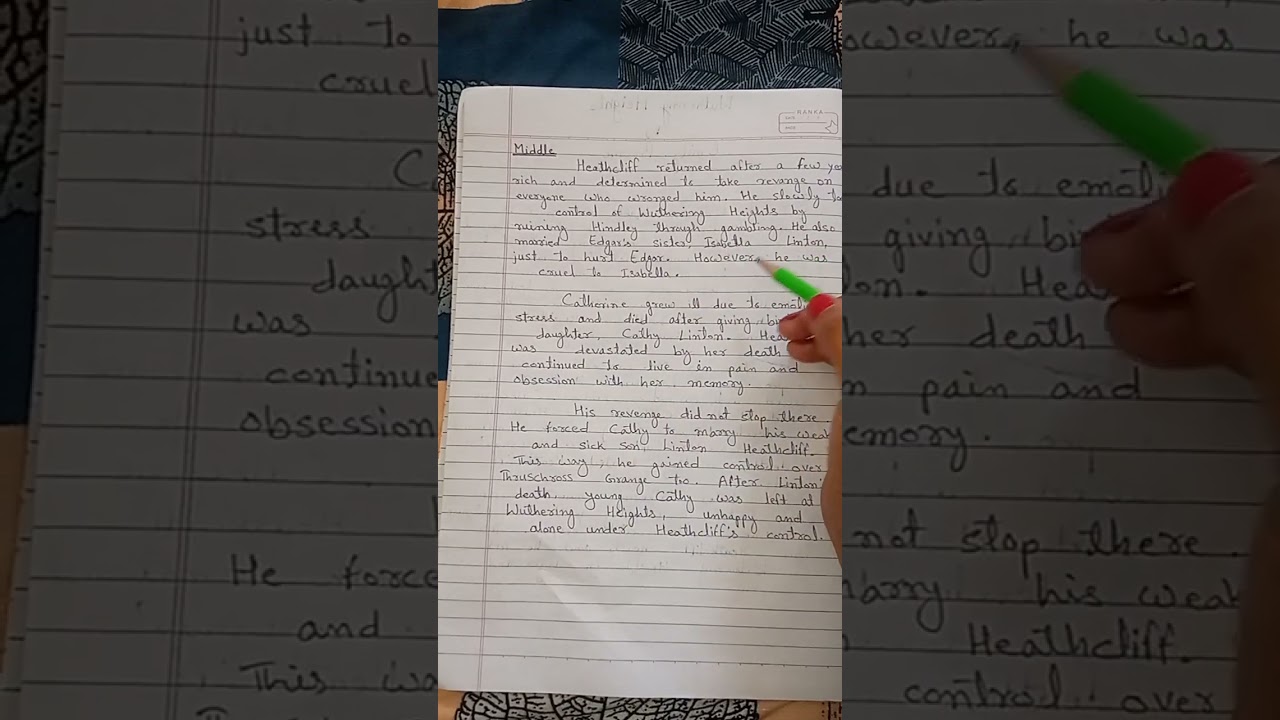 RANKA
Middle
Heathcliff returned after a few ye
rich and determined to take revange on
everyone who wronged him. He slowly to
control of Wuthering Heights by
ruining Hindley through gambling. He also
married Edgar's sister, Isabella Linton,
just to hurt Edgar. However, he was
cruel to Isabella.
Catherine grew ill due to emoti
stress and died after giving bir
daughter, Cathy Linton. Hea
was devastated by her death
continued to live in pain and
obsession with her memory.
His revenge did not stop there.
He forced Cathy to marry his weak
and sick son, Linton Heathcliff.
This way, he gained control over
Thruschross Grange too. After Linton's
death, young Cathy was left at
Wuthering Heights, unhappy and
alone under Heathcliff's control.